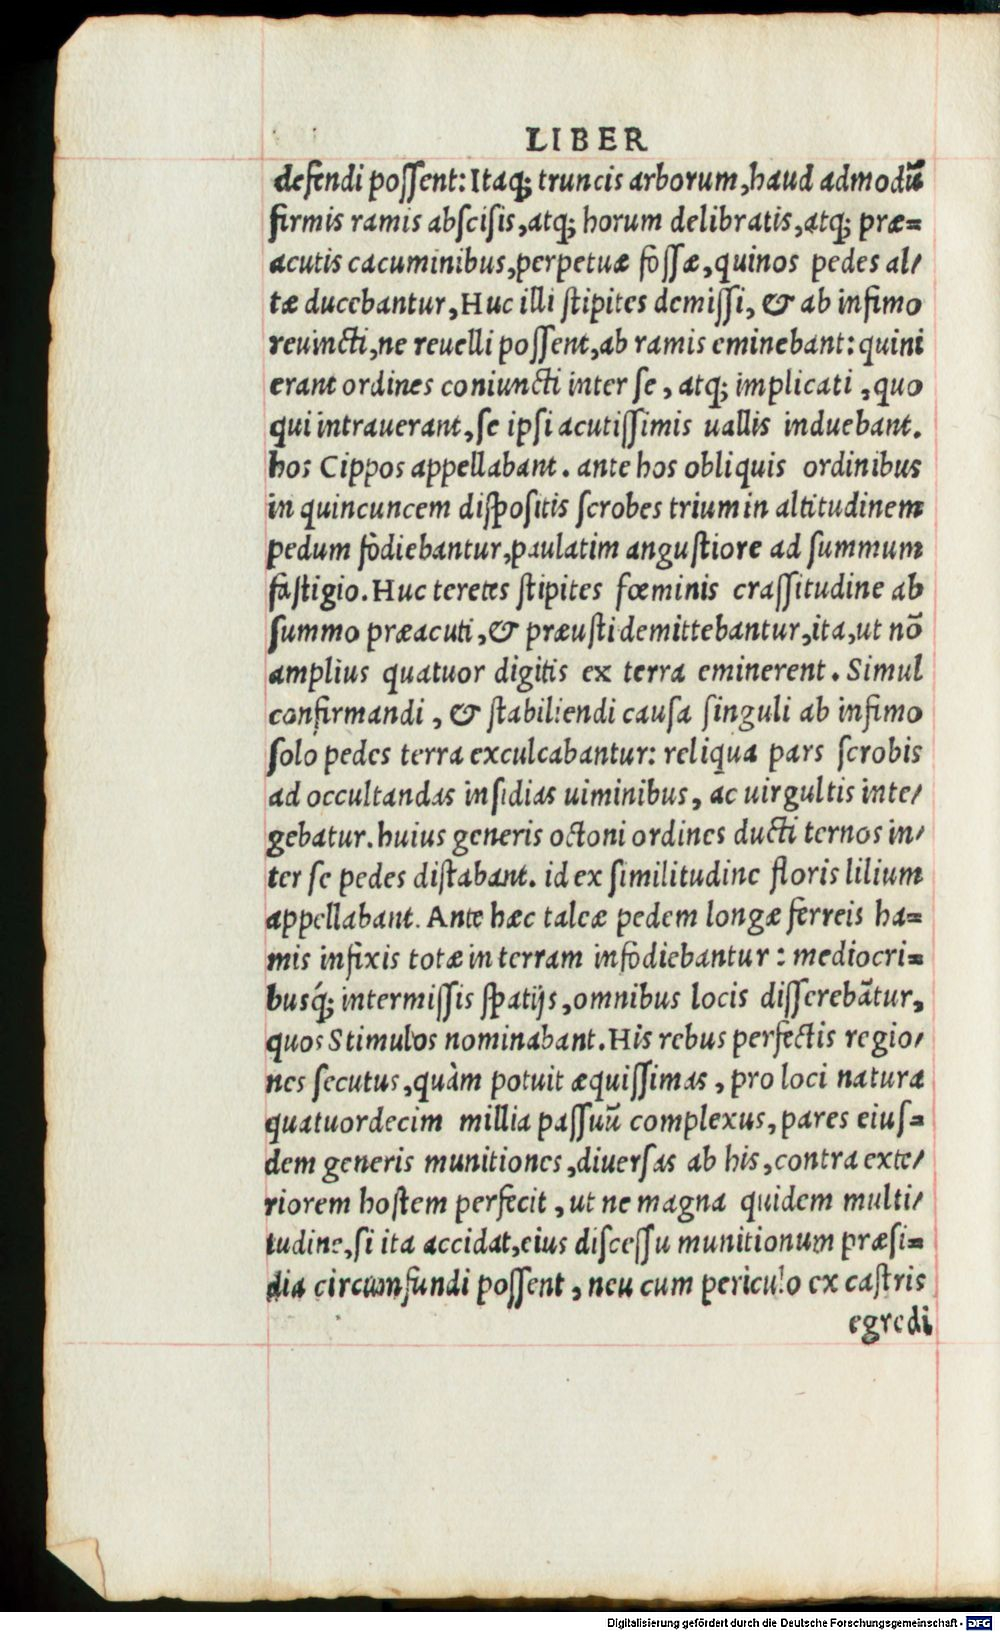 LIBER
defendi possent: Itaq; truncis arborum, haud admodū
firmis ramis abscisis, atq; horum delibratis, atq; præ=
acutis cacuminibus, perpetuæ fossæ, quinos pedes al/
tæ ducebantur, Huc illi stipites demissi, & ab infimo
reuincti, ne reuelli possent, ab ramis eminebant: quini
erant ordines coniuncti inter se, atq; implicati, quo
qui intrauerant, se ipsi acutissimis uallis induebant.
hos Cippos appellabant. ante hos obliquis ordinibus
in quincuncem dispositis scrobes trium in altitudinem
pedum fodiebantur, paulatim angustiore ad summum
fastigio. Huc teretes stipites fœminis crassitudine ab
summo præacuti, & præusti demittebantur, ita, ut nō
amplius quatuor digitis ex terra eminerent. Simul
confirmandi, & stabiliendi causa singuli ab infimo
solo pedes terra exculcabantur: reliqua pars scrobis
ad occultandas insidias uiminibus, ac uirgultis inte/
gebatur. huius generis octoni ordines ducti ternos in/
ter se pedes distabant. id ex similitudine floris lilium
appellabant. Ante hæc taleæ pedem longæ ferreis ha=
mis infixis totæ in terram infodiebantur: mediocri=
busq́; intermissis spatijs, omnibus locis disserebãtur,
quos Stimulos nominabant. His rebus perfectis regio/
nes secutus, quàm potuit æquissimas, pro loci natura
quatuordecim millia passuū complexus, pares eius=
dem generis munitiones, diuersas ab his, contra exte/
riorem hostem perfecit, ut ne magna quidem multi/
tudine, si ita accidat, eius discessu munitionum præsi=
dia circumfundi possent, neu cum periculo ex castris
egredi
Digitalisierung gefördert durch die Deutsche Forschungsgemeinschaft - DFG